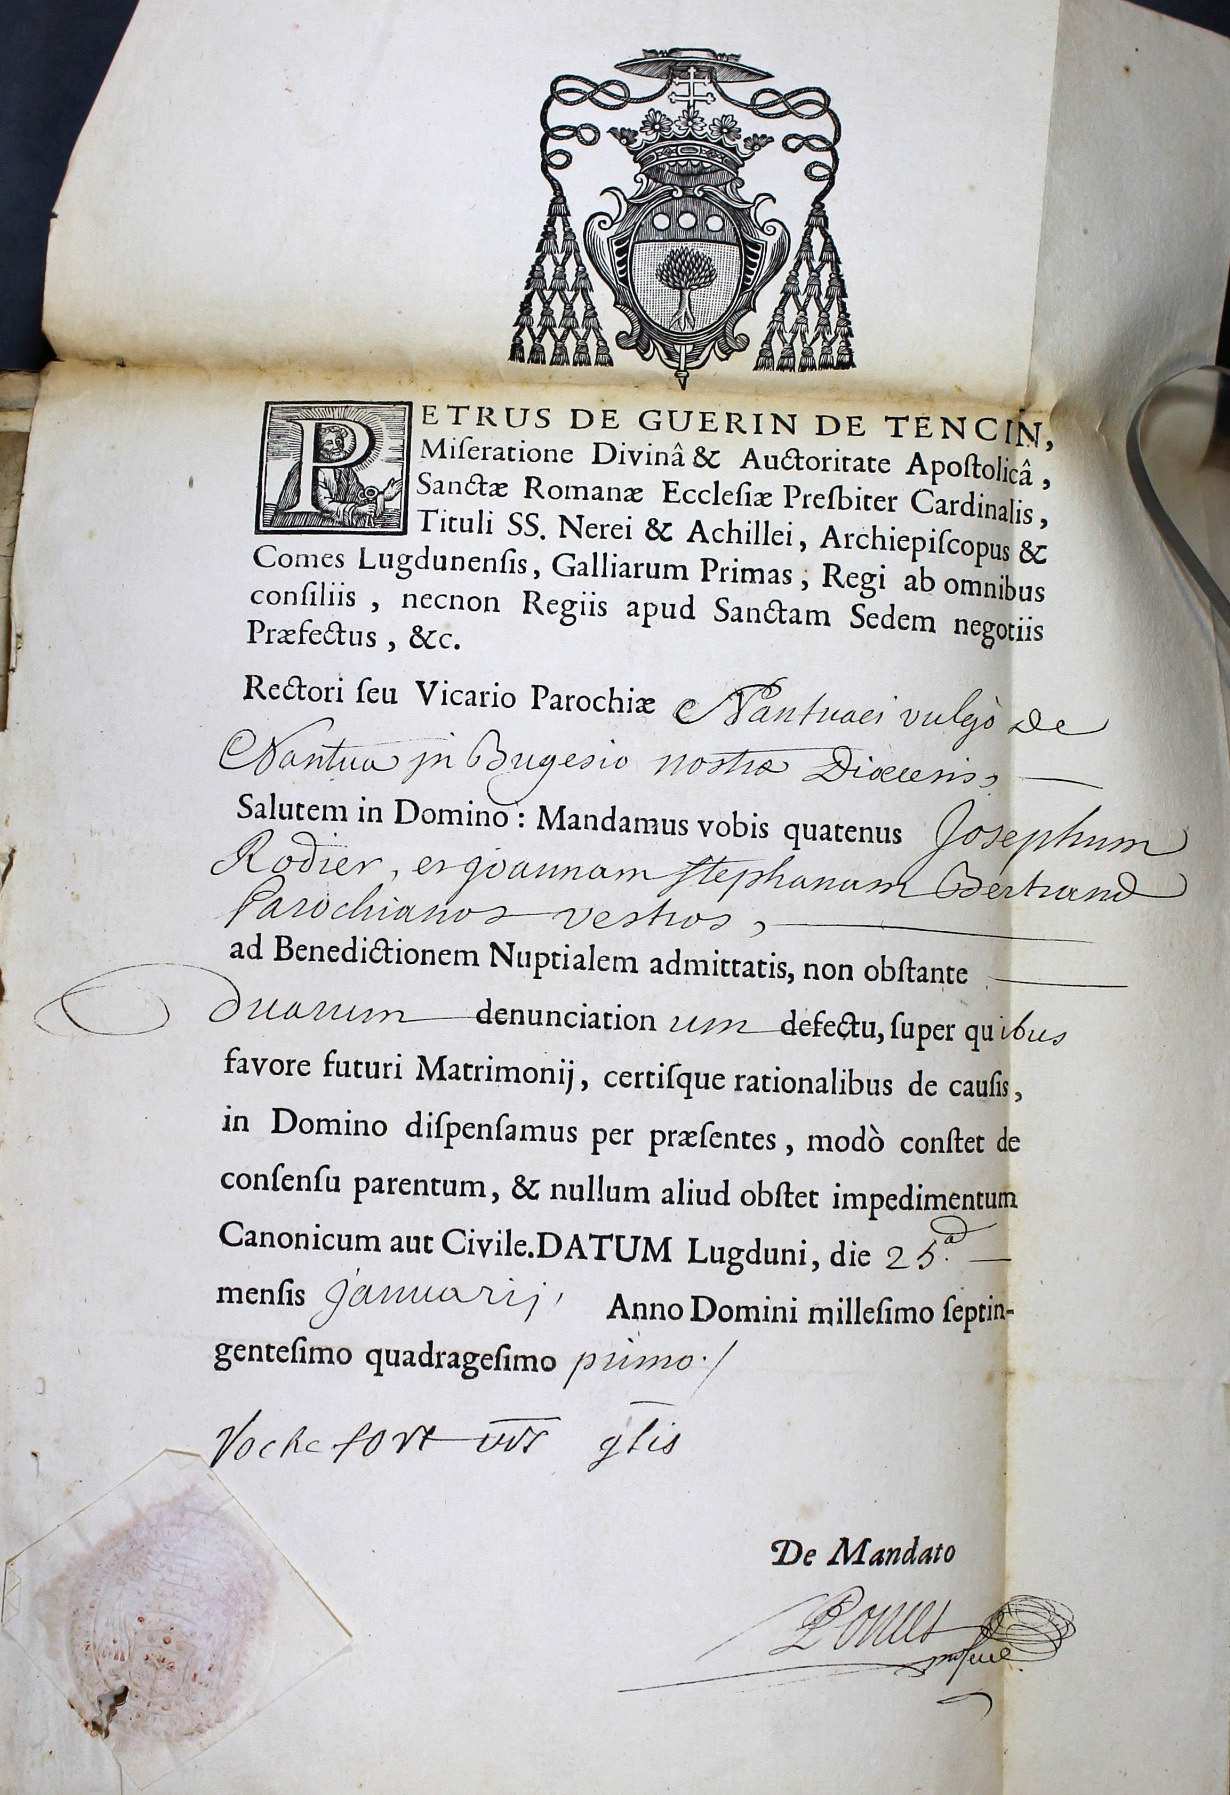 PETRUS DE GUERIN DE TENCIN,
Miſeratione Divinâ & Auctoritate Apoſtolicâ,
Sanctæ Romanæ Eccleſiæ Preſbiter Cardinalis,
Tituli SS. Nerei & Achillei, Archiepiſcopus &
Comes Lugdunenſis, Galliarum Primas, Regi ab omnibus
conſiliis, necnon Regiis apud Sanctam Sedem negotiis
Præfectus, &c.
Rectori ſeu Vicario Parochiæ Nantuaci vulgò de
Nantua in Bugesio nostræ Diœcesis,
Salutem in Domino: Mandamus vobis quatenus Josephum
Rodier, et Joannam Stephanam Bertrand
Parochianos vestros,
ad Benedictionem Nuptialem admittatis, non obſtante
Duarum denunciationum defectu, ſuper quibus
favore futuri Matrimonij, certiſque rationalibus de cauſis,
in Domino diſpenſamus per præſentes, modò conſtet de
conſenſu parentum, & nullum aliud obſtet impedimentum
Canonicum aut Civile. DATUM Lugduni, die 25.a
menſis Januarij, Anno Domini milleſimo ſeptin-
genteſimo quadrageſimo primo./
gſlis
De Mandato